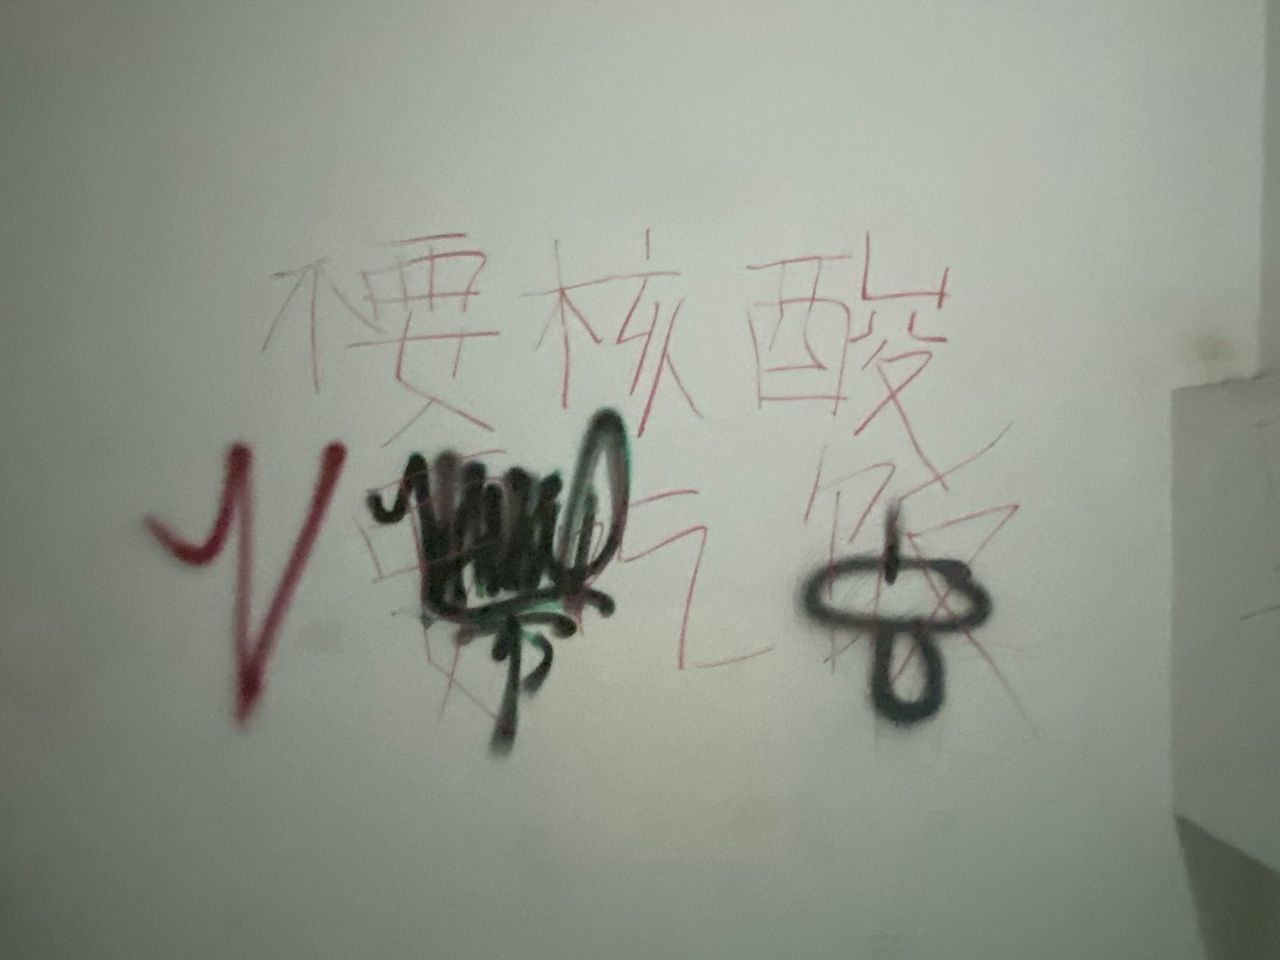 不要核酸
要吃饭